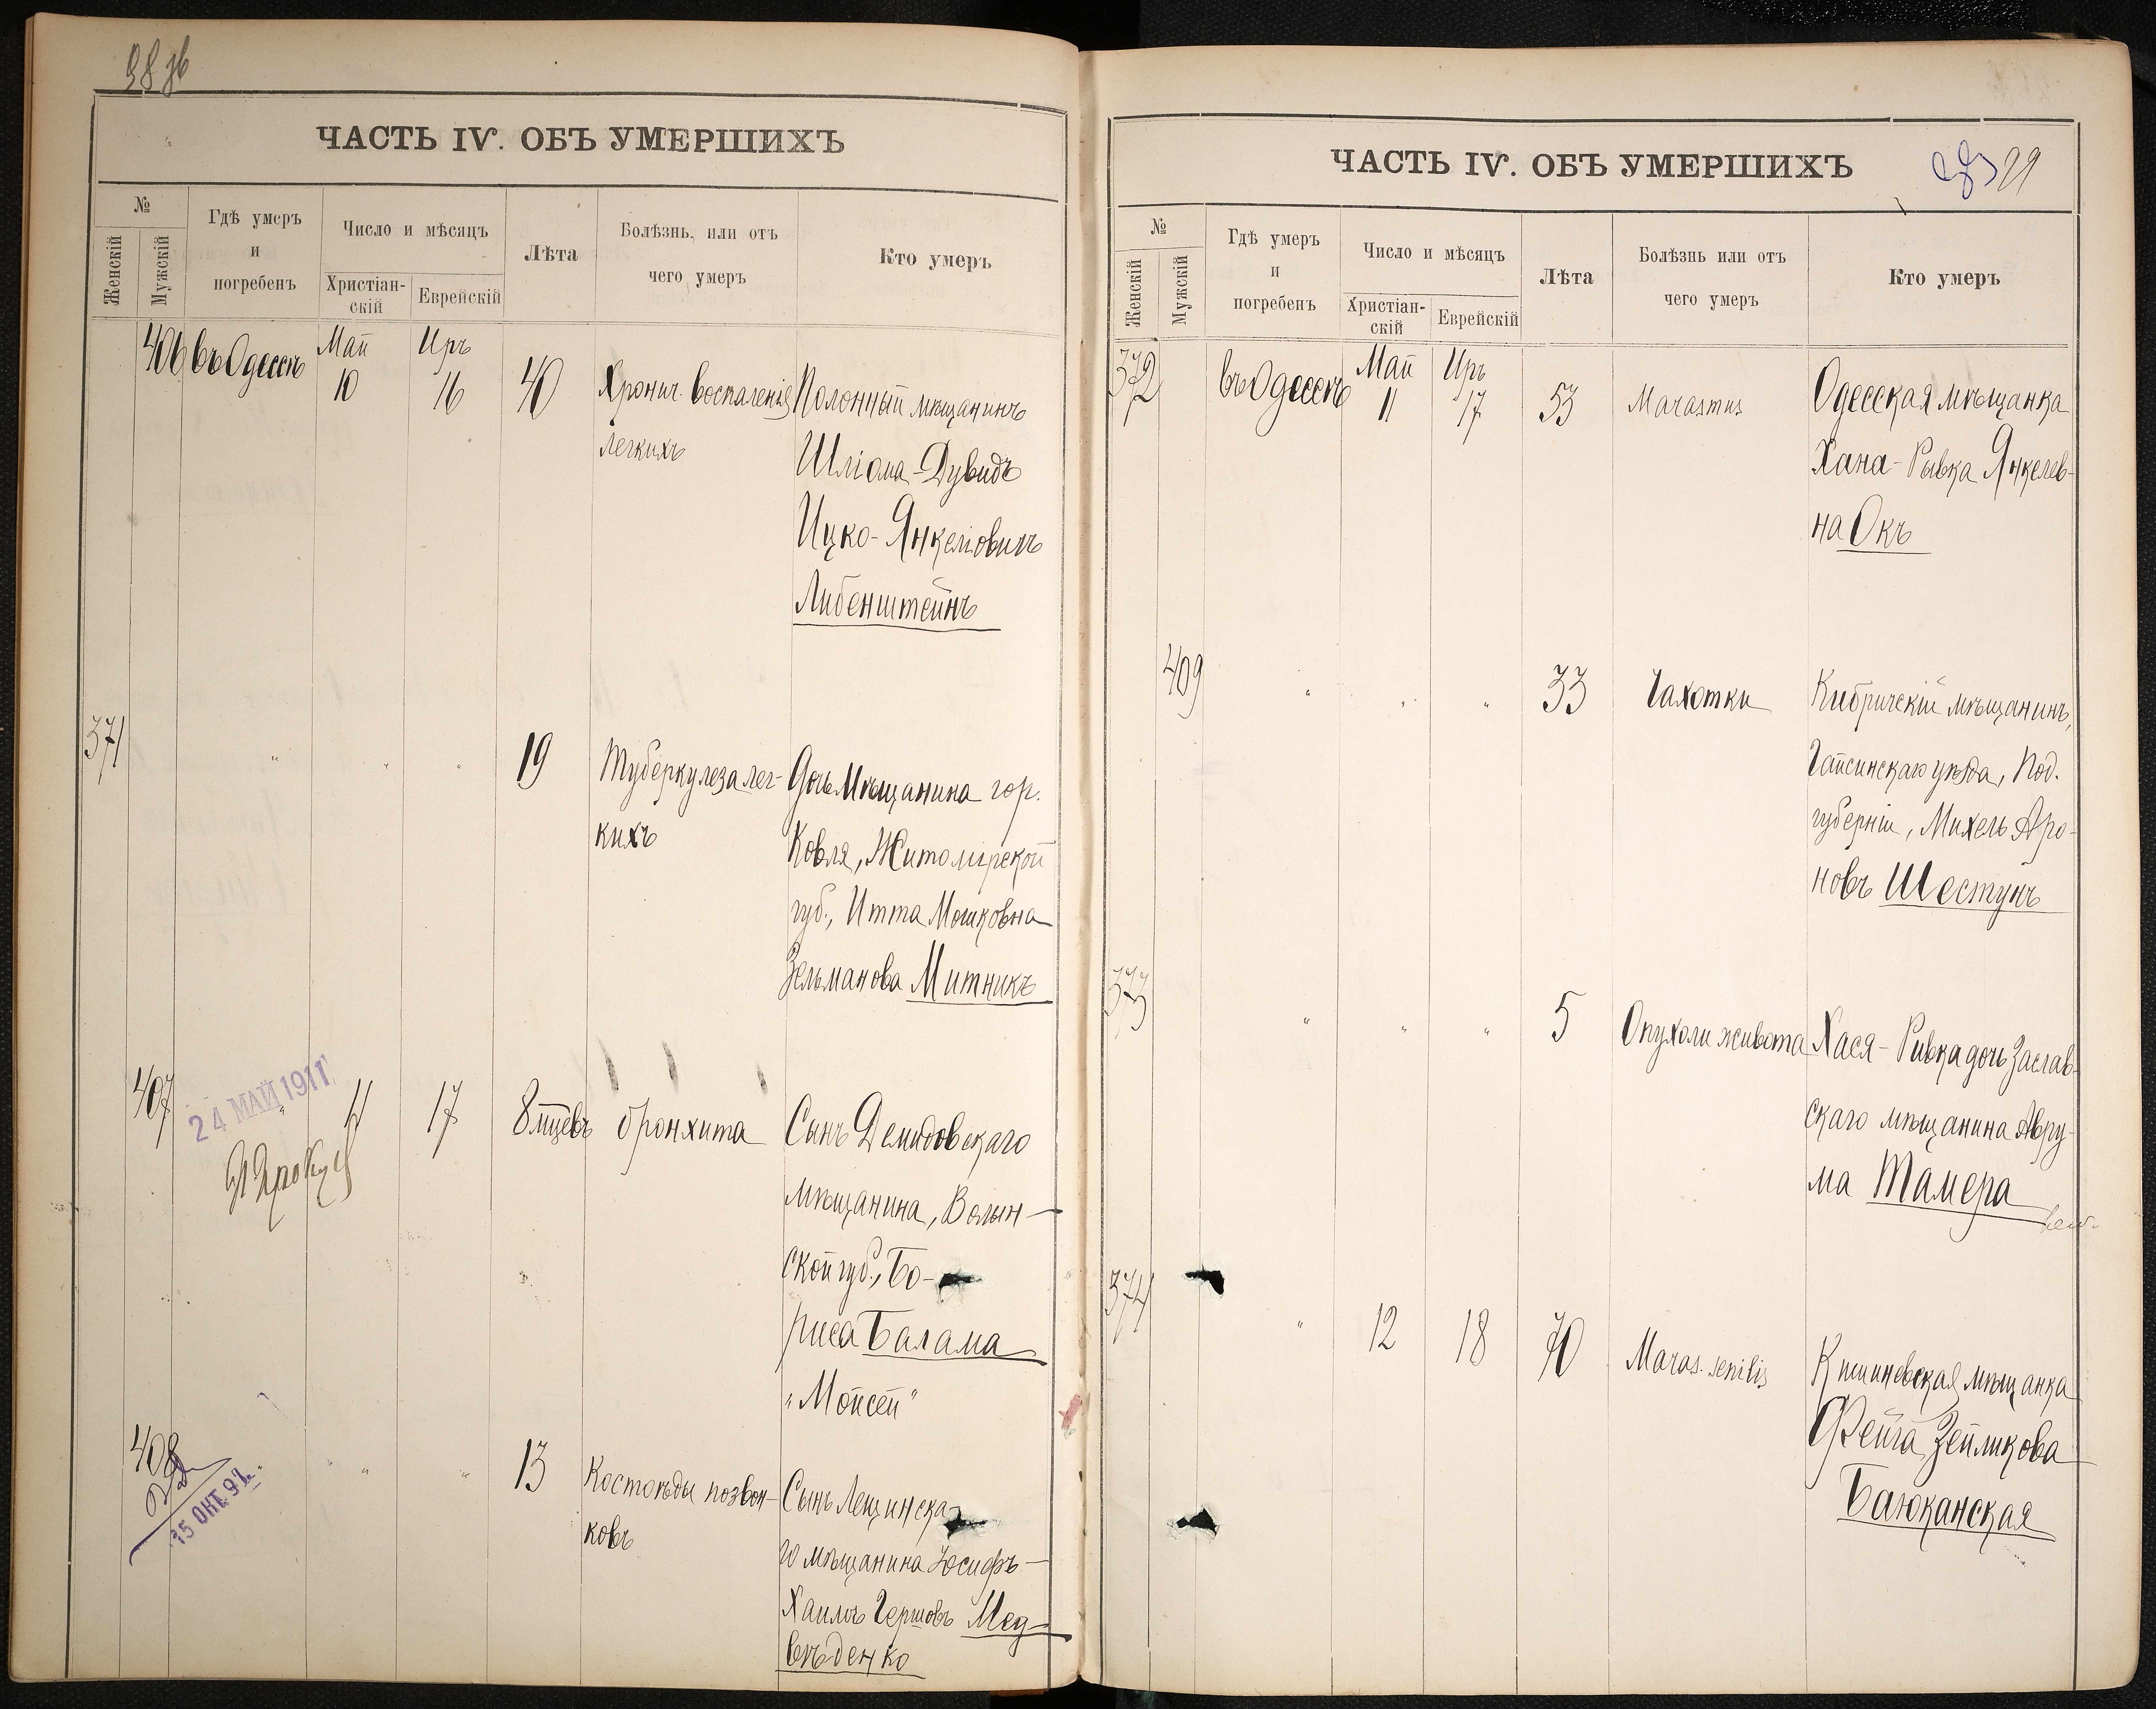 98 зв
ЧАСТЬ IV. ОБЪ УМЕРШИХЪ
№
Женскій
Мужскій
Гдѣ умеръ
и
погребенъ
Число и мѣсяцъ
Христіан-
скій
Еврейскій
Лѣта
Болѣзнь, или отъ
чего умеръ
Кто умеръ
406 въ Одессѣ Май 10 Иръ 16 40 Хронич. воспаленія Полонный мѣщанинъ
легкихъ Шліома-Дувидъ
Ицко-Янкеліовичъ
Либенштейнъ
371 " " " 19 Туберкулеза лег- Дочь Мѣщанина гор.
кихъ Ковля, Житомірской
губ., Итта Мошковна
Зельманова Митникъ
407 " 11 17 8 мцевъ бронхита Сынъ Демидовскаго
24 МАЙ 1911
мѣщанина, Волын-
ской губ., Бо-
риса Балама
"Мойсей"
408 " " 13 Костоѣды позвон- Сынъ Лещинска-
15 ОКТ. 97.
ковъ го мѣщанина Іосифъ-
Хаимъ Гершовъ Мед-
вѣденко
ЧАСТЬ IV. ОБЪ УМЕРШИХЪ
99
№
Женскій
Мужскій
Гдѣ умеръ
и
погребенъ
Число и мѣсяцъ
Христіан-
скій
Еврейскій
Лѣта
Болѣзнь или отъ
чего умеръ
Кто умеръ
372 въ Одессѣ Май 11 Иръ 17 53 Marasmus Одесская мѣщанка
Хана-Рывка Янкелев-
на Окъ
409 " " " 33 Чахотки Кибричскій мѣщанинъ,
Гайсинскаго уѣзда, Под.
губерніи, Михель Аро-
новъ Шестунъ
373 " " " 5 Опухоли живота Хася-Ривка дочь Заслав-
скаго мѣщанина Авру-
ма Тамера
374 " 12 18 70 Maras. senilis Кишиневская мѣщанка
Фейга Зейликова
Баюканская